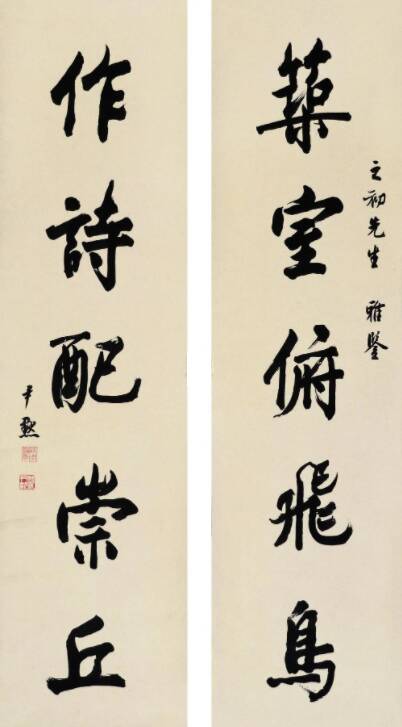 築室俯飛鳥
之初先生 雅鑒
作詩配崇丘
尹默